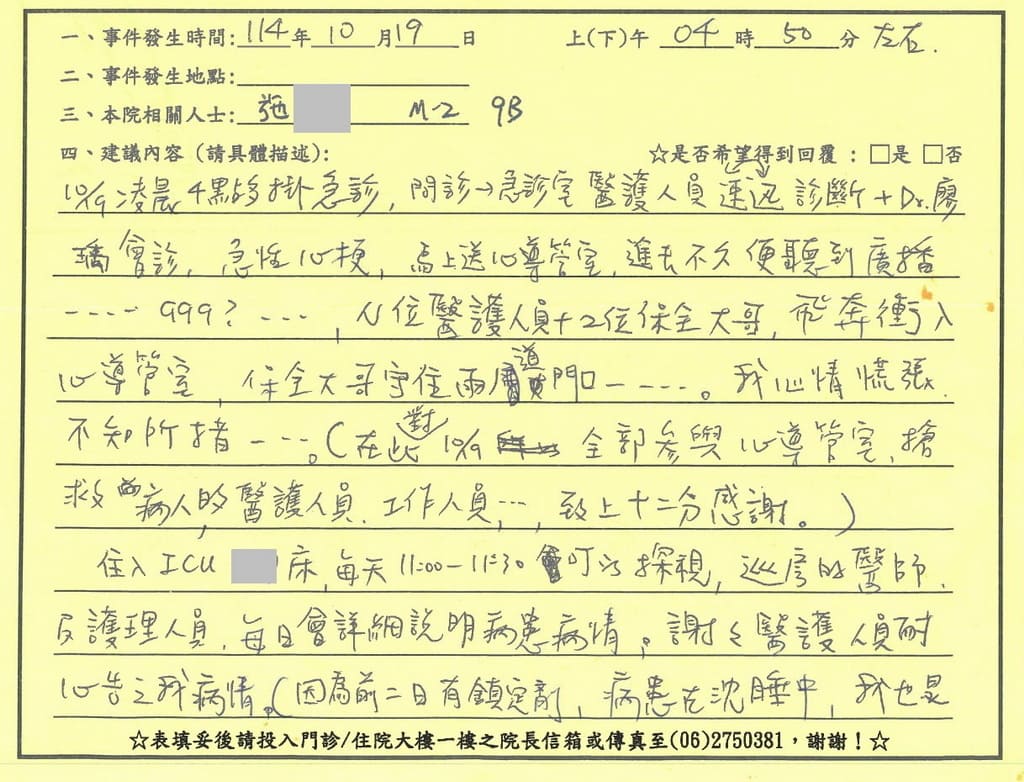 一、事件發生時間:114年10月19日 上(下)午 04時50分左右.
二、事件發生地點:
三、本院相關人士: 施 M-2 9B
四、建議內容(請具體描述): ☆是否希望得到回覆:□是 □否
10/19凌晨4點多掛急診,問診→急診室醫護人員速迅診斷+Dr.廖
瑀會診,急性心梗,馬上送心導管室,進去不久便聽到廣播
---- 999? ---, N位醫護人員+2位保全大哥,飛奔衝入
心導管室,保全大哥守住兩道門口----。我心情慌張.
不知所措---。(在此對10/19全部參與心導管室,搶
救病人的醫護人員.工作人員,…,致上十二分感謝。)
住入ICU 床,每天11:00-11:30可以探視,巡房的醫師.
及護理人員,每日會詳細說明病患病情。謝々醫護人員耐
心告之我病情。(因為前二日有鎮定劑,病患在沈睡中,我也是
☆表填妥後請投入門診/住院大樓一樓之院長信箱或傳真至(06)2750381,謝謝!☆